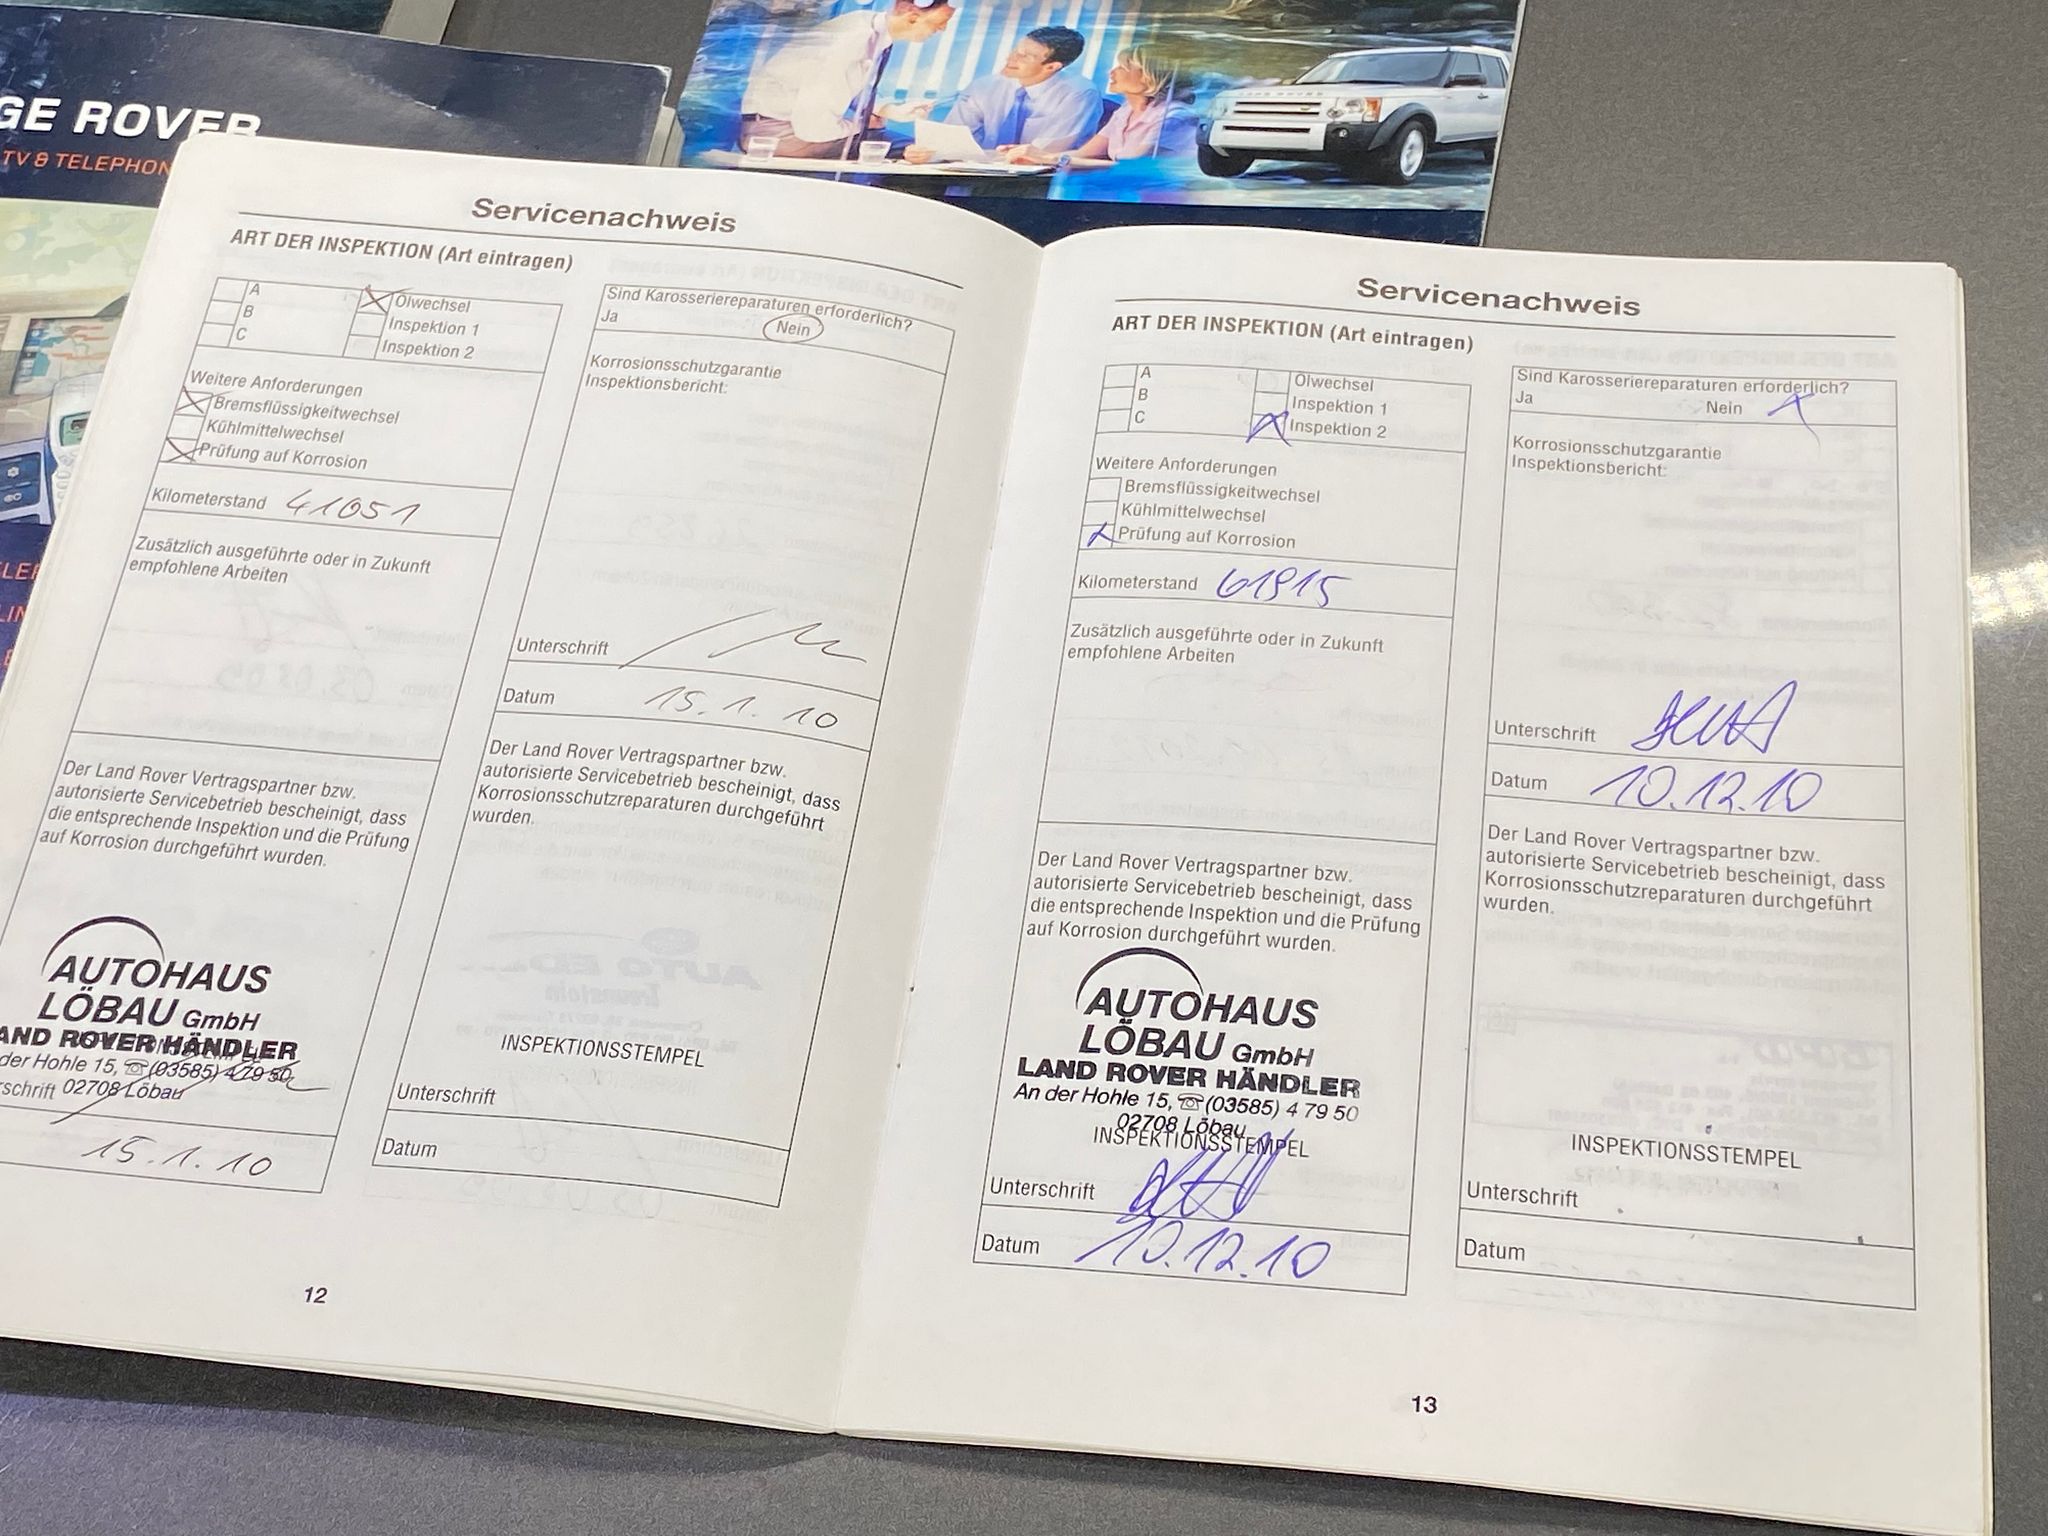 GE ROVER
TV & TELEPHON
Servicenachweis
ART DER INSPEKTION (Art eintragen)
A
B
C
Ölwechsel
Inspektion 1
Inspektion 2
Weitere Anforderungen
Bremsflüssigkeitwechsel
Kühlmittelwechsel
Prüfung auf Korrosion
Kilometerstand 41051
Zusätzlich ausgeführte oder in Zukunft
empfohlene Arbeiten
Der Land Rover Vertragspartner bzw.
autorisierte Servicebetrieb bescheinigt, dass
die entsprechende Inspektion und die Prüfung
auf Korrosion durchgeführt wurden.
AUTOHAUS
LÖBAU GmbH
AND ROVER HÄNDLER
der Hohle 15, ☏(03585) 4 79 50
rschrift 02708 Löbau
15.1.10
Sind Karosseriereparaturen erforderlich?
Ja Nein
Korrosionsschutzgarantie
Inspektionsbericht:
Unterschrift
Datum 15.1.10
Der Land Rover Vertragspartner bzw.
autorisierte Servicebetrieb bescheinigt, dass
Korrosionsschutzreparaturen durchgeführt
wurden.
INSPEKTIONSSTEMPEL
Unterschrift
Datum
12
Servicenachweis
ART DER INSPEKTION (Art eintragen)
A
B
C
Ölwechsel
Inspektion 1
Inspektion 2
Weitere Anforderungen
Bremsflüssigkeitwechsel
Kühlmittelwechsel
Prüfung auf Korrosion
Kilometerstand 61915
Zusätzlich ausgeführte oder in Zukunft
empfohlene Arbeiten
Der Land Rover Vertragspartner bzw.
autorisierte Servicebetrieb bescheinigt, dass
die entsprechende Inspektion und die Prüfung
auf Korrosion durchgeführt wurden.
AUTOHAUS
LÖBAU GmbH
LAND ROVER HÄNDLER
An der Hohle 15, ☏(03585) 4 79 50
02708 Löbau
INSPEKTIONSSTEMPEL
Unterschrift
Datum 10.12.10
Sind Karosseriereparaturen erforderlich?
Ja Nein
Korrosionsschutzgarantie
Inspektionsbericht:
Unterschrift
Datum 10.12.10
Der Land Rover Vertragspartner bzw.
autorisierte Servicebetrieb bescheinigt, dass
Korrosionsschutzreparaturen durchgeführt
wurden.
INSPEKTIONSSTEMPEL
Unterschrift
Datum
13